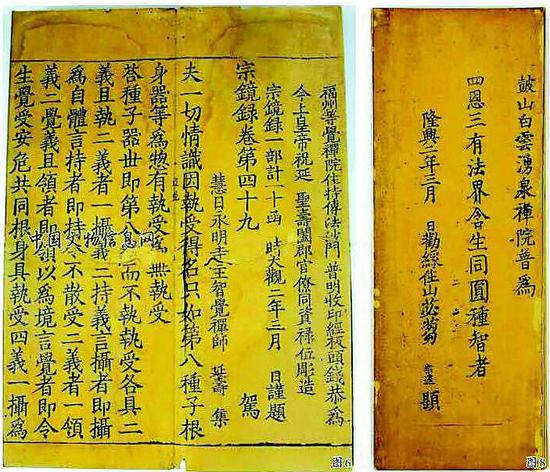 福州等覺禪院住持傳法沙門 普明收印經板頭錢恭爲
今上皇帝祝延 聖壽闔郡官僚同資祿位彫造
宗鏡録一部計一十函 時大觀二年三月 日謹題
宗鏡録卷第四十九 駕
慧日永明寺主智覺禪師 延壽 集
夫一切情識因執受得名只如第八種子根
身器等爲惣有執受爲無執受
荅種子器世即第 而不執受各具二
義且執二義者一攝義二持義言攝者即攝
爲自體言持者即持令不散受二義者一領
義二覺義且領者即領以爲境言覺者即令
生覺受安危共同根身具執受四義一攝爲
中国文物信息网
图6
皷山白雲湧泉禪院普爲
四恩三有法界含生同圓種智者
隆興二年三月 日勸緣住山苾蒭 題
图8